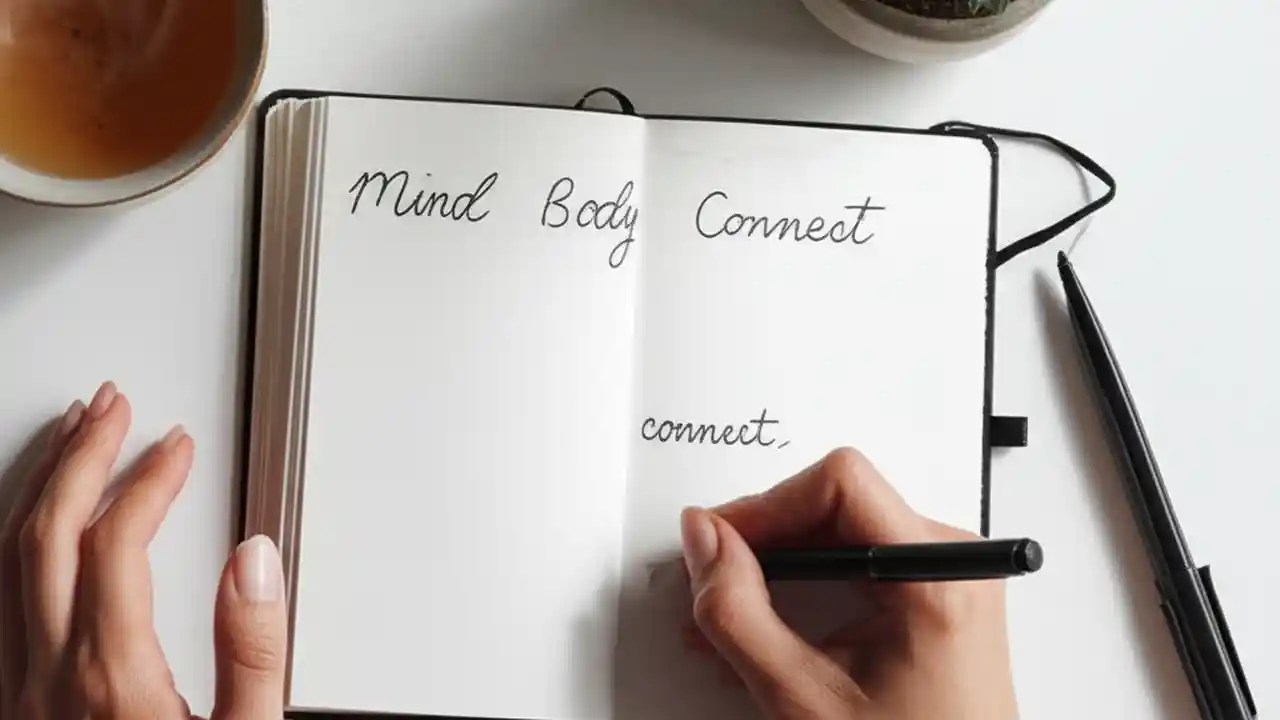 Mind Body Connect
connect,